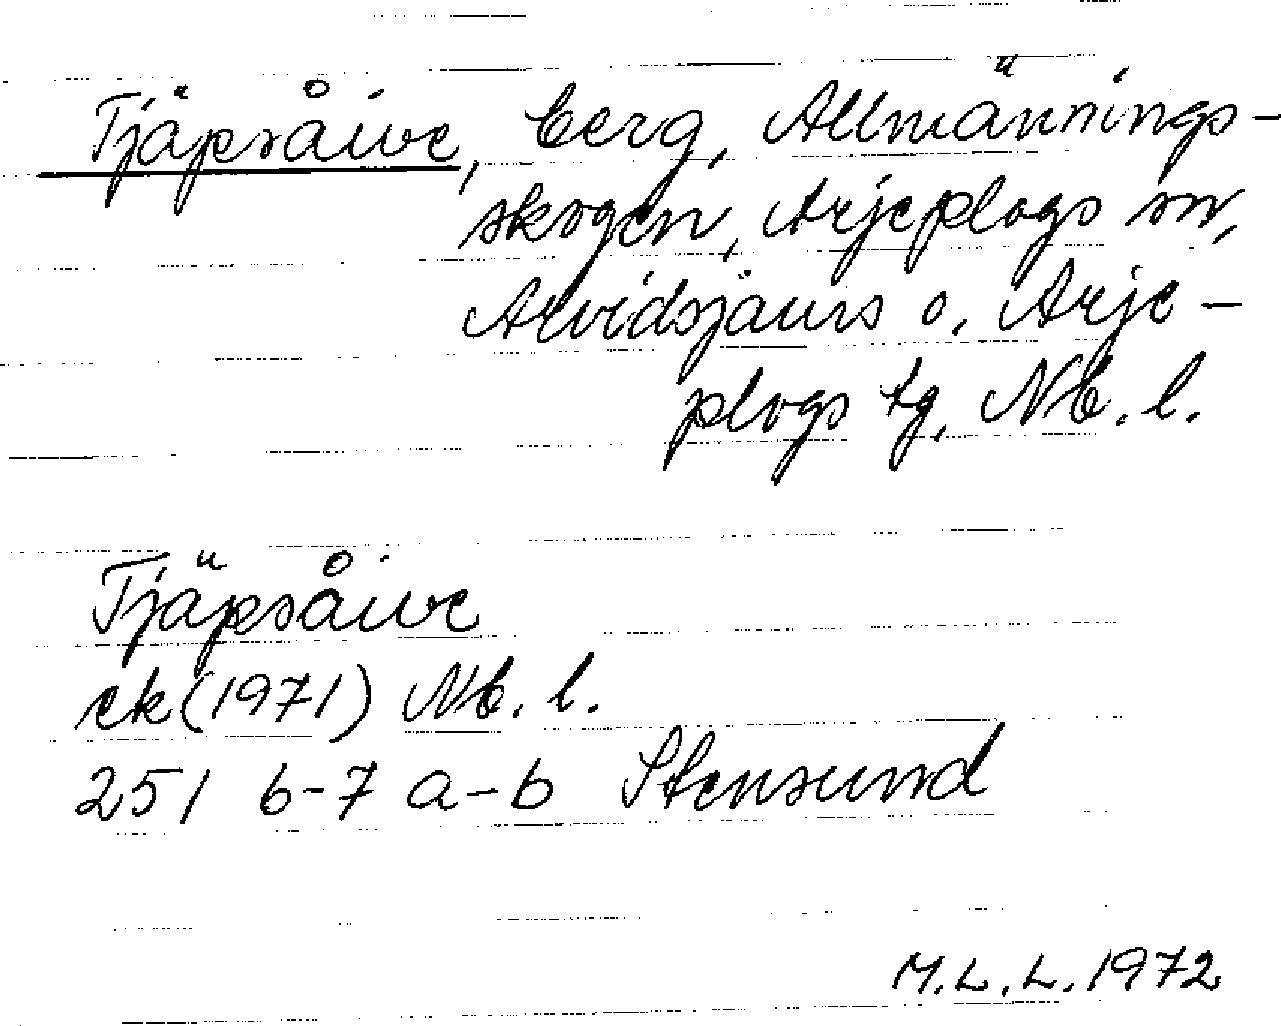 Tjäpsåive, berg, Allmännings-
skogen, Arjeplogs sn,
Arvidsjaurs o. Arje-
plogs tg, Nb. l.
Tjäpsåive
ek (1971) Nb. l.
251 6-7 a-b Stensund
M.L.L. 1972